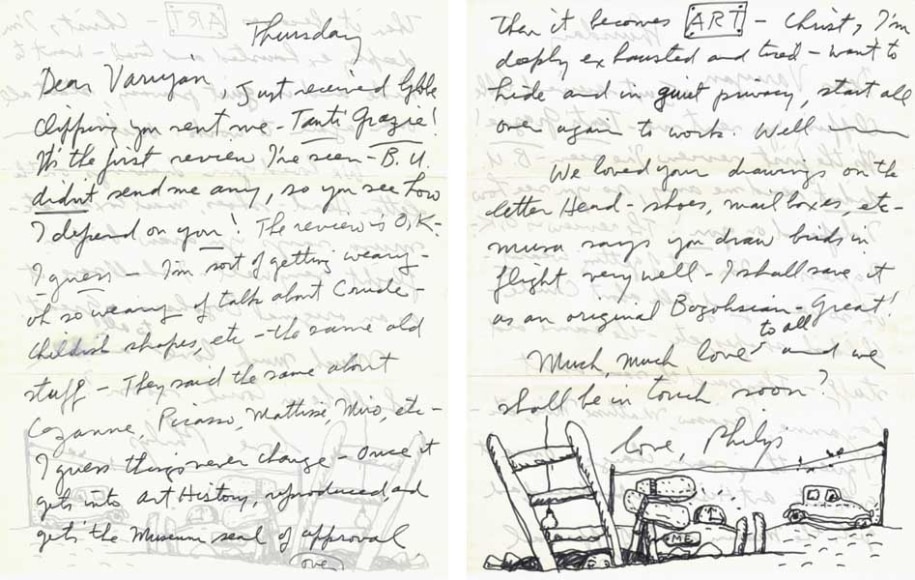 Thursday
Dear Varujan, Just received Globe
clipping you sent me - Tanti Grazie!
It's the first review I've seen - B.U.
didn't send me any, so you see how
I depend on you! The review is O.K. -
I guess - I'm sort of getting weary -
oh so weary of talk about Crude -
childish shapes, etc - the same old
stuff - They said the same about
Cezanne, Picasso, Mattisse, Miro, etc -
I guess things never change - Once it
gets into Art History, reproduced, and
gets the Museum seal of approval
(over)
then it becomes ART - Christ, I'm
deeply exhausted and tired - want to
hide and in quiet privacy, start all
over again to work. Well —
We loved your drawings on the
letter Head - shoes, mail boxes, etc -
musa says you draw birds in
flight very well - I shall save it
as an original Bogohsian - Great!
Much, much love to all and we
shall be in touch soon?
love, Philip
ME